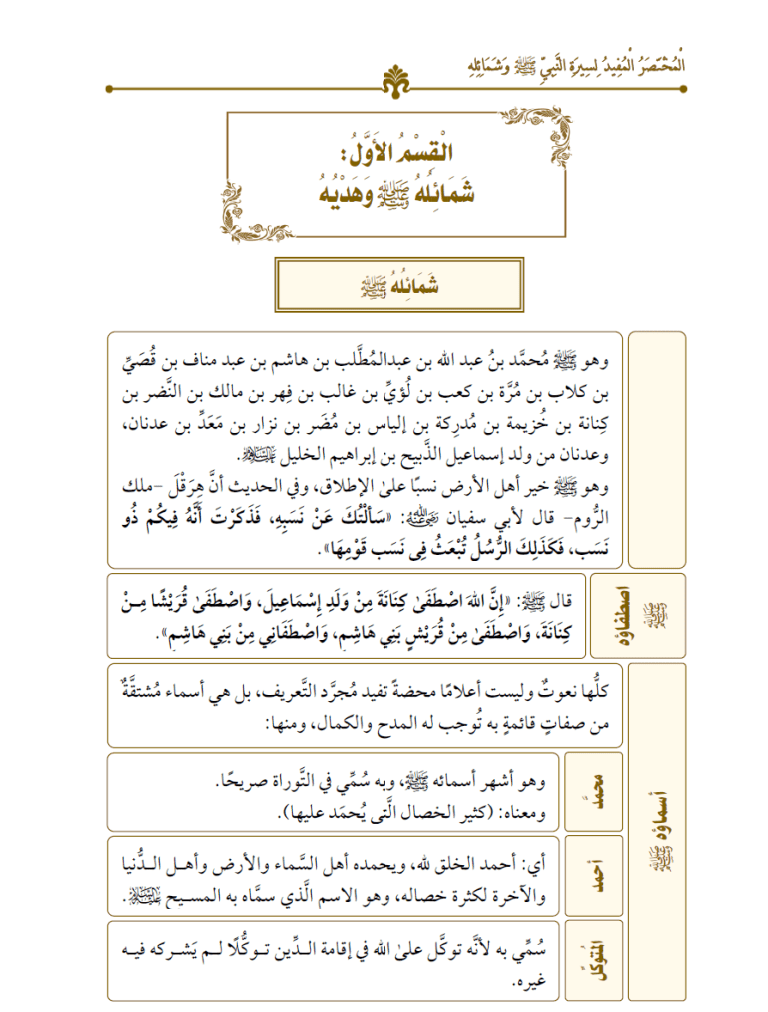 الْمُخْتَصَرُ الْمُفِيدُ لِسِيرَةِ النَّبِيِّ ﷺ وَشَمَائِلِهِ
الْقِسْمُ الأَوَّلُ:
شَمَائِلُهُ ﷺ وَهَدْيُهُ
شَمَائِلُهُ ﷺ
وهو ﷺ مُحمَّد بنُ عبد الله بن عبدالمُطَّلب بن هاشم بن عبد مناف بن قُصَيِّ
بن كلاب بن مُرَّة بن كعب بن لُؤيِّ بن غالب بن فِهر بن مالك بن النَّضر بن
كِنانة بن خُزيمة بن مُدرِكة بن إلياس بن مُضَر بن نزار بن مَعَدِّ بن عدنان،
وعدنان من ولد إسماعيل الذَّبيح بن إبراهيم الخليل عليه السلام.
وهو ﷺ خير أهل الأرض نسبًا علىٰ الإطلاق، وفي الحديث أنَّ هِرَقْلَ -ملك
الرُّوم- قال لأبي سفيان رضي الله عنه: «سَأَلْتُكَ عَنْ نَسَبِهِ، فَذَكَرْتَ أَنَّهُ فِيكُمْ ذُو
نَسَب، فَكَذَلِكَ الرُّسُلُ تُبْعَثُ فِى نَسَب قَوْمِهَا».
اصطفاؤه ﷺ
قال ﷺ: «إِنَّ اللهَ اصْطَفَىٰ كِنَانَةَ مِنْ وَلَدِ إِسْمَاعِيلَ، وَاصْطَفَىٰ قُرَيْشًا مِـنْ
كِنَانَةَ، وَاصْطَفَىٰ مِنْ قُرَيْشٍ بَنِي هَاشِمٍ، وَاصْطَفَانِي مِنْ بَنِي هَاشِمٍ».
أسماؤه ﷺ
كلُّها نعوتٌ وليست أعلامًا محضةً تفيد مُجرَّد التَّعريف، بل هي أسماء مُشتقَّةٌ
من صفاتٍ قائمةٍ به تُوجب له المدح والكمال، ومنها:
محمَّد
وهو أشهر أسمائه ﷺ، وبه سُمِّي في التَّوراة صريحًا.
ومعناه: (كثير الخصال الَّتى يُحمَد عليها).
أحمد
أي: أحمد الخلق لله، ويحمده أهل السَّماء والأرض وأهـل الـدُّنيا
والآخرة لكثرة خصاله، وهو الاسم الَّذي سمَّاه به المسـيح عليه السلام.
المُتوكِّل
سُمِّي به لأنَّه توكَّل علىٰ الله في إقامة الـدِّين تـوكُّلًا لـم يَشـركه فيـه
غيره.